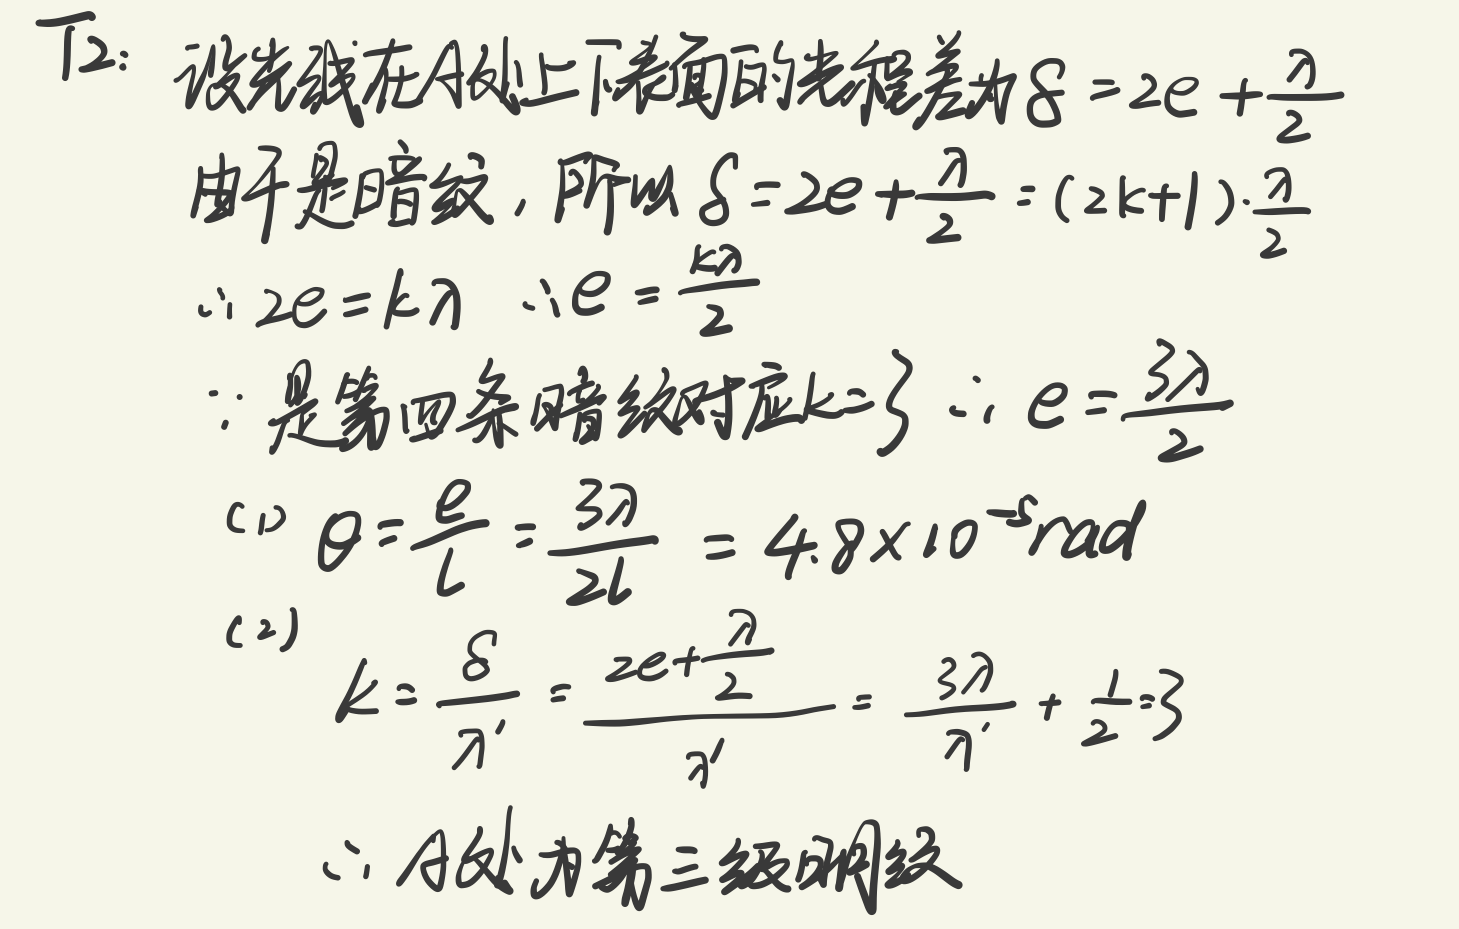 T2: 设光线在A处上下表面的光程差为δ=2e+λ/2
由于是暗纹,所以δ=2e+λ/2=(2k+1)·λ/2
∴2e=kλ ∴e=kλ/2
∵是第四条暗纹对应k=3 ∴e=3λ/2
(1) θ=e/l=3λ/2l=4.8×10⁻⁵rad
(2)
k=δ/λ'=(2e+λ/2)/λ'=3λ/λ'+1/2=3
∴A处为第三级明纹